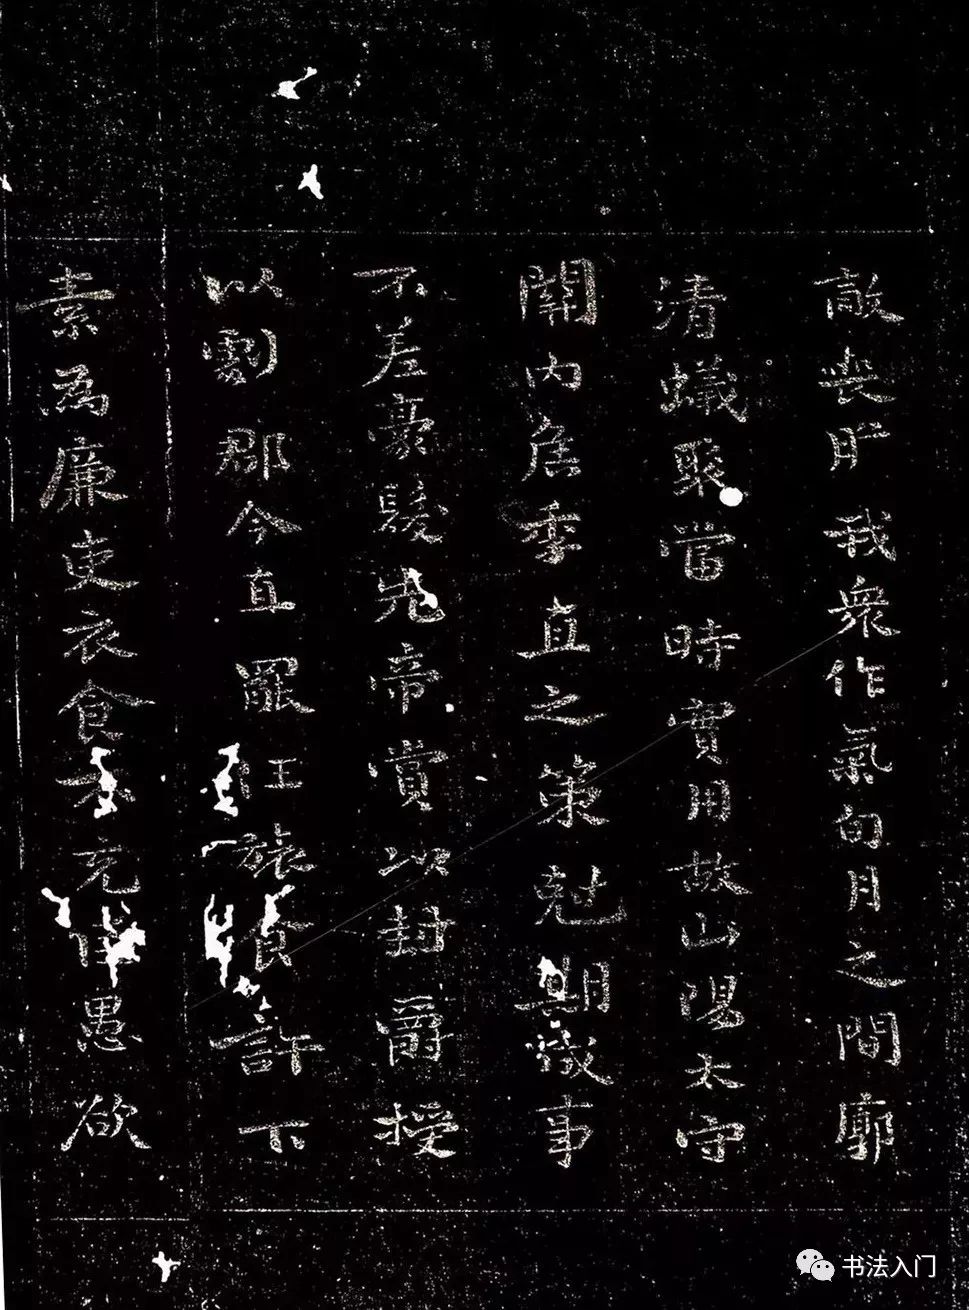 敵喪膽我衆作氣旬月之間廓
清蟻聚當時實用故山陽太守
關內侯季直之策尅期成事
不差豪髮先帝賞以封爵授
以劇郡今直罷任旅食許下
素爲廉吏衣食不充臣愚欲
书法入门